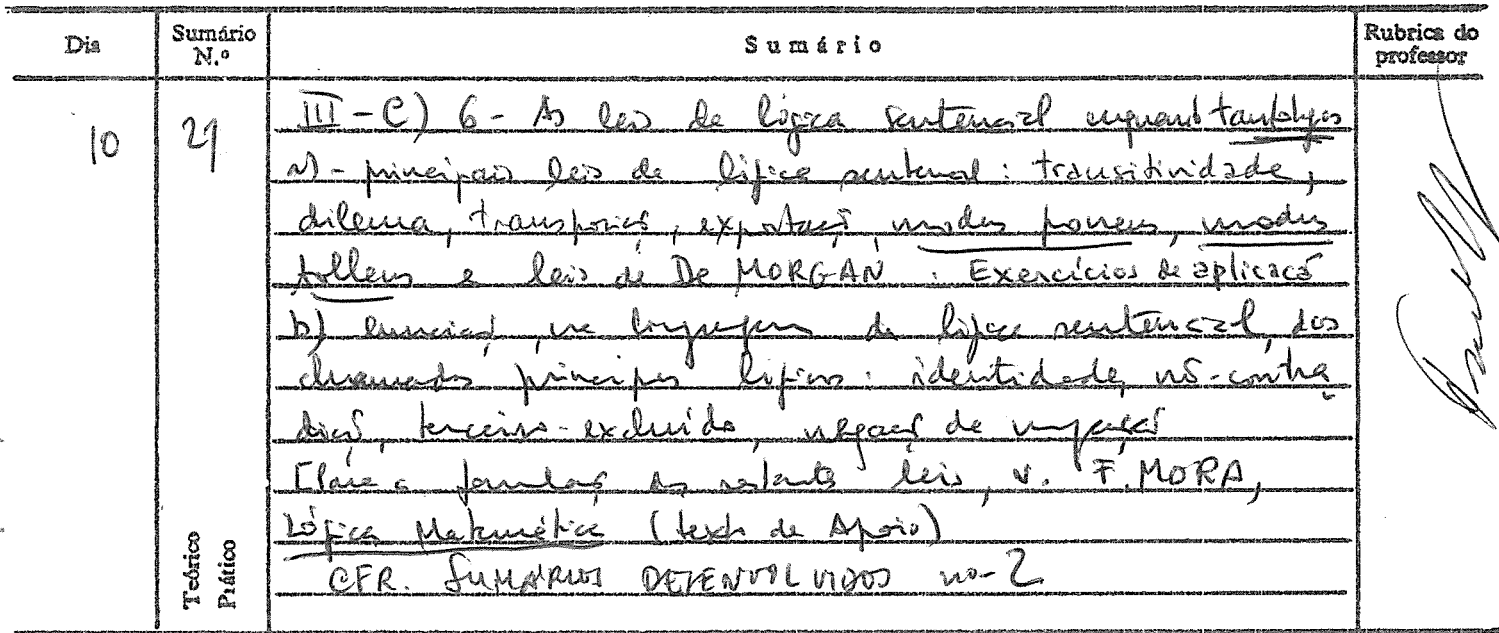 Dia
Sumário N.º
Sumário
Rubrica do professor
10
21
III - C) 6 - As leis da lógica sentencial enquanto tautologias
a) - principais leis da lógica sentencial : transitividade,
dilema, transposição, exportação, modus ponens, modus
tollens e leis de De MORGAN . Exercícios de aplicação
b) enunciação, na linguagem da lógica sentencial, dos
chamados princípios lógicos : identidade, não-contra
dição, terceiro-excluído, negação da negação
[Para a formulação das restantes leis, v. F. MORA,
Lógica Matemática (texto de Apoio)
CFR. SUMÁRIOS DESENVOLVIDOS no- 2
Teórico
Prático